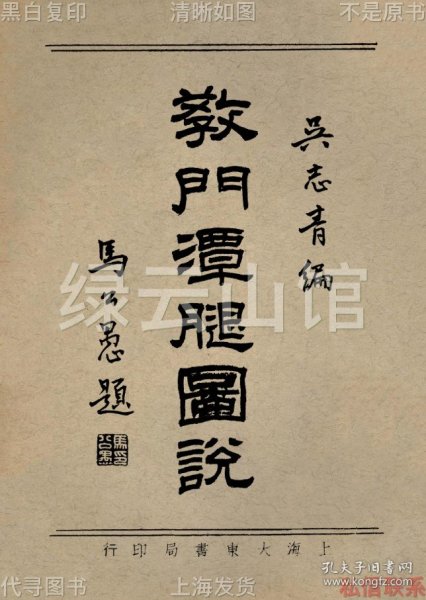 黑白复印 清晰如图 不是原书
吳志青編
教門潭腿圖說
馬公愚題
馬公愚印
绿云山馆
上海大東書局印行
孔夫子旧书网
www.kongfz.com
代寻图书 上海发货 私信联系